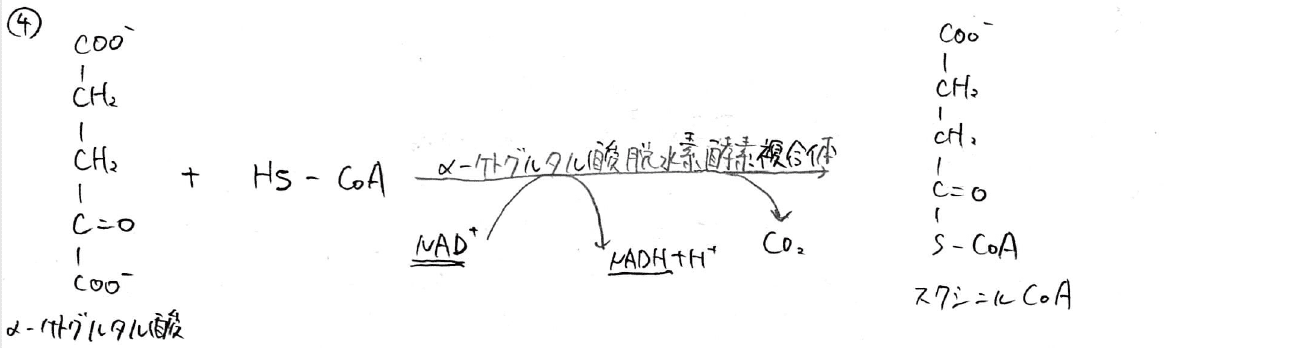 ④
COO⁻
CH₂
CH₂
C=O
COO⁻
α-ケトグルタル酸
+ HS-CoA
α-ケトグルタル酸脱水素酵素複合体
NAD⁺
NADH+H⁺
CO₂
COO⁻
CH₂
CH₂
C=O
S-CoA
スクシニルCoA